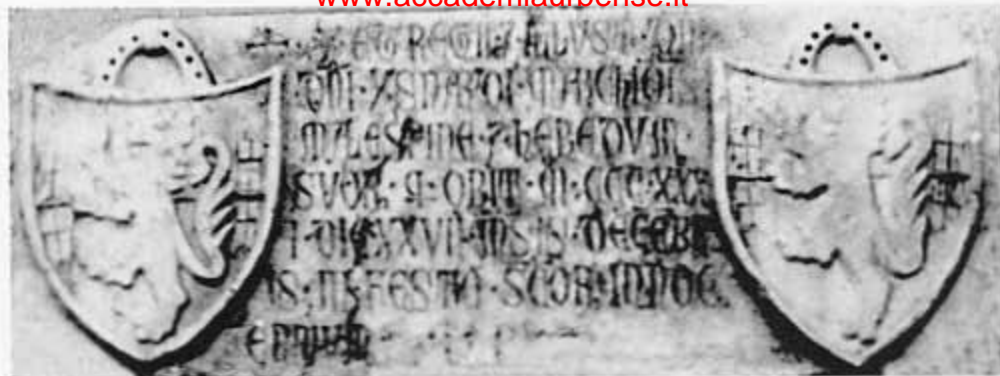 www.accademiaurbense.it
EGREGII · ILLUST ·
DNI · YSNARDI · MARCHIOI
MALESPINE · 7 · HEREDVM ·
SVOR · Q · OBIIT · M · CCC · XX
DIE XXVI · MSIS · DECEBR
IS · FESTO · SCOR · INNOC
ENTIUM